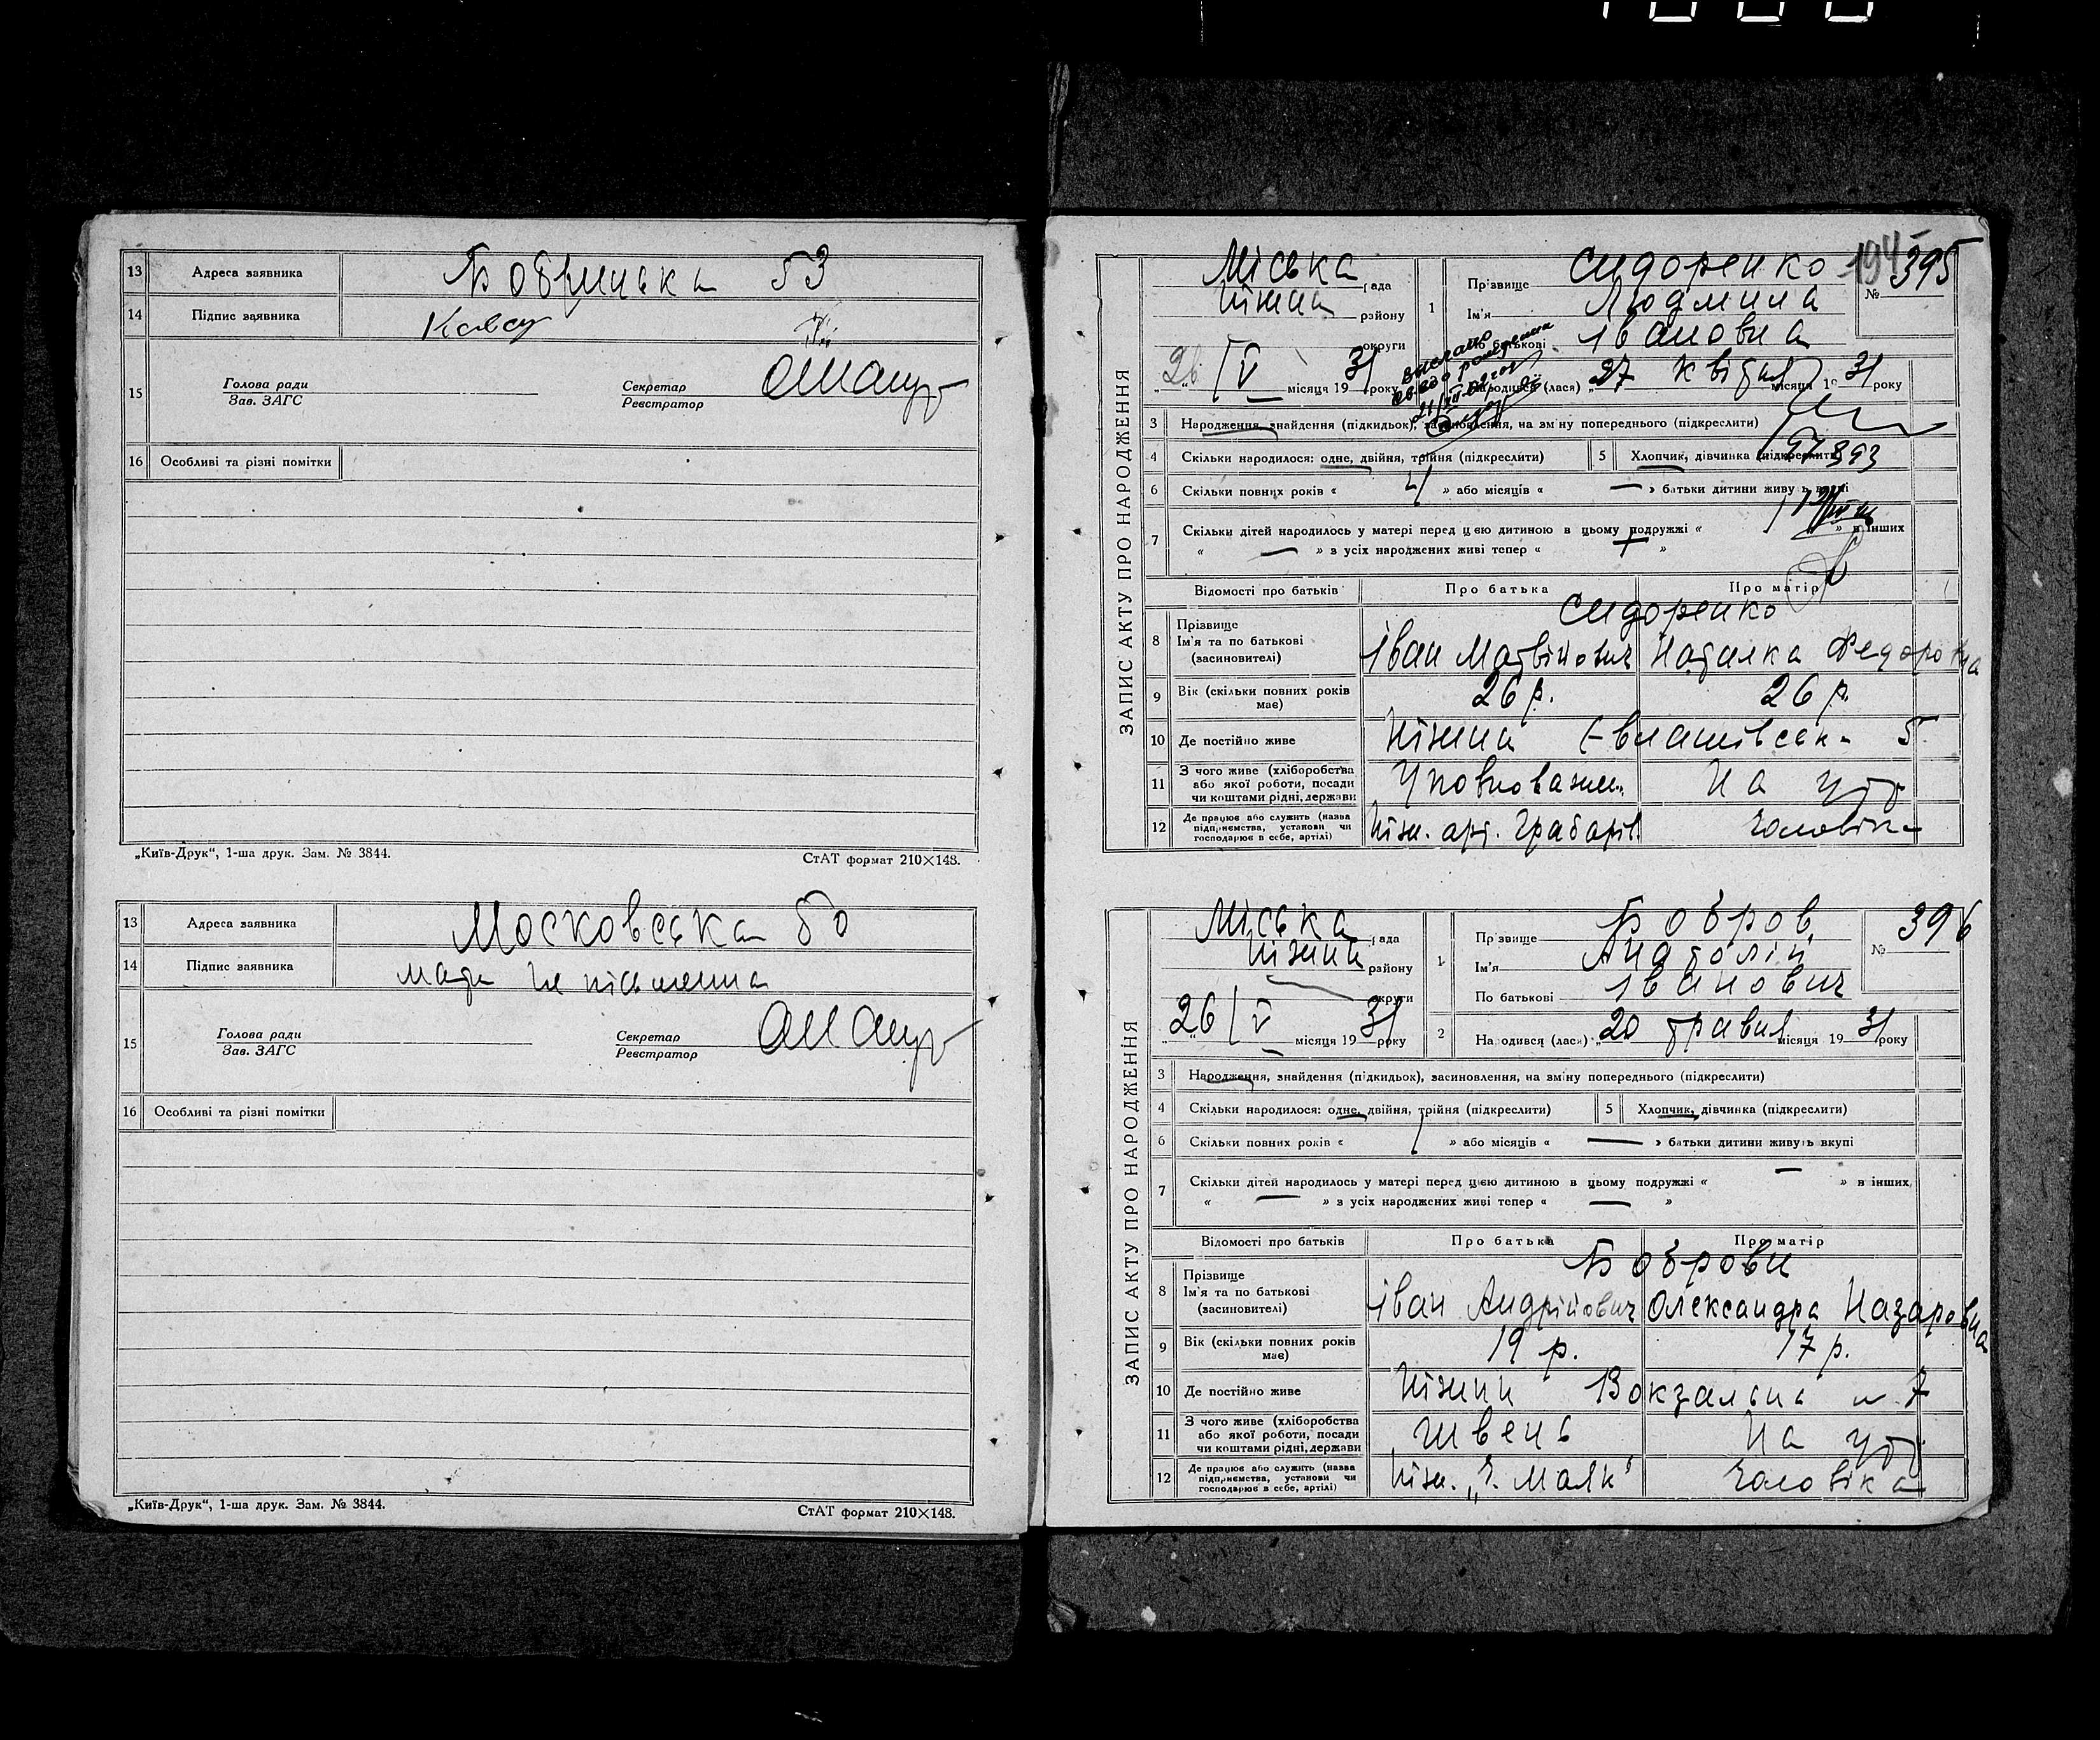 13 Адреса заявника
53
14 Підпис заявника
15 Голова ради
Зав. ЗАГС
Секретар
Реєстратор
16 Особливі та різні помітки
„Київ-Друк“, 1-ша друк. Зам. № 3844.
СтАТ формат 210×148.
13 Адреса заявника Московська 50
14 Підпис заявника мати не письменна
15 Голова ради
Зав. ЗАГС
Секретар
Реєстратор
16 Особливі та різні помітки
„Київ-Друк“, 1-ша друк. Зам. № 3844.
СтАТ формат 210×148.
ЗАПИС АКТУ ПРО НАРОДЖЕННЯ
Міська рада
Ніжин району
округи
26/V місяця 1931 року
1 Прізвище Сидоренко
Ім'я Людмила
По батькові Івановна
№ 395
Народився (лася) „27 квітня місяця 1931 року
3 Народження, знайдення (підкидьок), засиновлення, на зміну попереднього (підкреслити)
4 Скільки народилося: одне, двійня, трійня (підкреслити)
5 Хлопчик, дівчинка (підкреслити)
6 Скільки повних років « 4 » або місяців « — » батьки дитини живуть вкупі
7 Скільки дітей народилось у матері перед цією дитиною в цьому подружжі « » в інших
« — » з усіх народжених живі тепер « »
Відомості про батьків
Про батька
Про матір
Сидоренко
8 Прізвище
Ім'я та по батькові
(засиновителі)
Іван Матвійович
Наталка Федоровна
9 Вік (скільки повних років має) 26 р. 26 р.
10 Де постійно живе Ніжин 5
11 З чого живе (хліборобства або якої роботи, посади чи коштами рідні, держави Уповноважен. На утр
12 Де працює або служить (назва підприємства, установи чи господарює в себе, артілі) Ніжн. арт. Грабарів чоловіка
ЗАПИС АКТУ ПРО НАРОДЖЕННЯ
Міська рада
Ніжин району
округи
26/V місяця 1931 року
1 Прізвище Бобров
Ім'я Анатолій
По батькові Іванович
№ 396
2 Народився (лася) „20 травня місяця 1931 року
3 Народження, знайдення (підкидьок), засиновлення, на зміну попереднього (підкреслити)
4 Скільки народилося: одне, двійня, трійня (підкреслити)
5 Хлопчик, дівчинка (підкреслити)
6 Скільки повних років « 1 » або місяців « — » батьки дитини живуть вкупі
7 Скільки дітей народилось у матері перед цією дитиною в цьому подружжі « — » в інших
« — » з усіх народжених живі тепер « — »
Відомості про батьків
Про батька
Про матір
Боброви
8 Прізвище
Ім'я та по батькові
(засиновителі)
Іван Андрійович
Олександра Назаровна
9 Вік (скільки повних років має) 19 р. 17 р.
10 Де постійно живе Ніжин Вокзальна 7
11 З чого живе (хліборобства або якої роботи, посади чи коштами рідні, держави Швець На утр
12 Де працює або служить (назва підприємства, установи чи господарює в себе, артілі) Ніжн. „Ч. Маяк" чоловіка